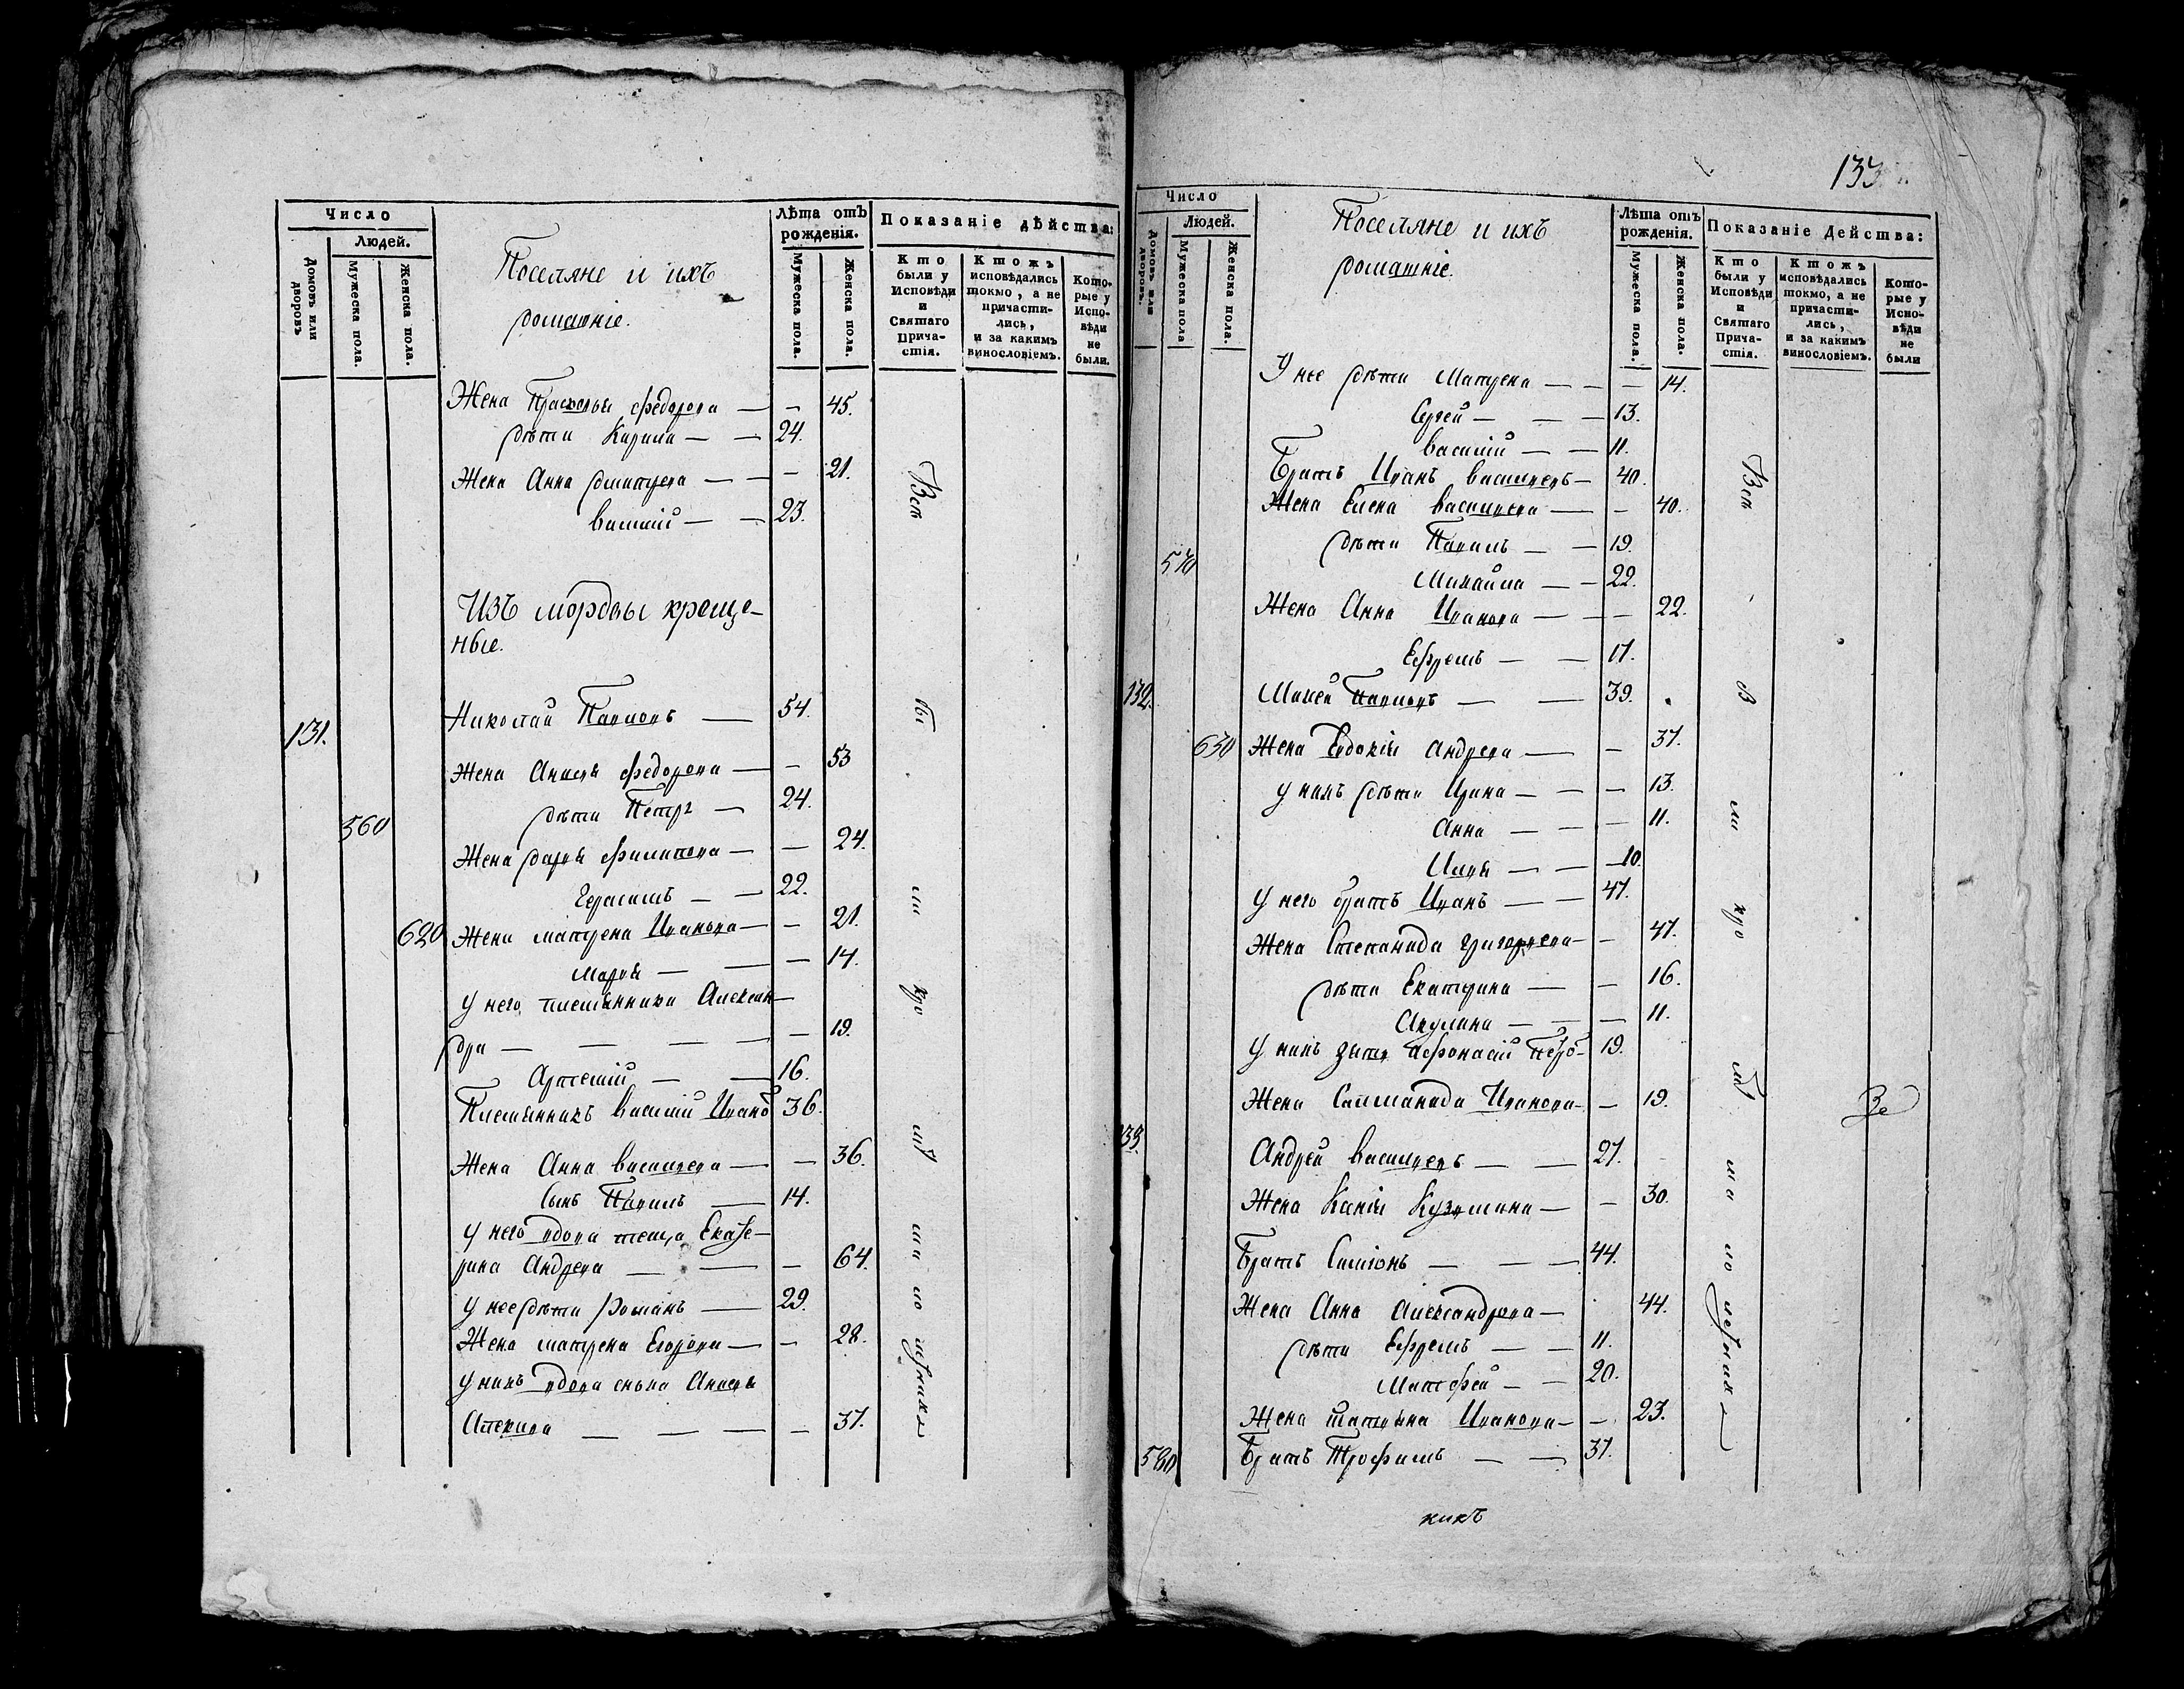 Число
Людей.
Домовъ или дворовъ
Мужеска пола.
Женска пола.
Поселяне и ихъ
домашніе.
Лѣта отъ рожденія.
Мужеска пола.
Женска пола.
Показаніе дѣйства:
Кто были у Исповѣди и Святаго Причастія.
Ктожъ исповѣдались токмо, а не причастились, и за какимъ винословіемъ.
Которые у Исповѣди не были.
Жена Прасковья Федорова — — 45.
дѣти Кирила — — 24.
Жена Анна Дмитрева — — — 21.
Василій — — 23.
Изъ мордвы креще-
ные.
131. Николай Павловъ — 54.
Жена Анисья Федорова — — 53
дѣти Петръ — 24.
560
Жена Дарья Филипова — — 24.
Герасимъ — — 22.
620 Жена Матрена Иванова — — 21.
Марья — — — 14.
у него племянники Алексан-
дра — — — — — 19.
Артемій — — 16.
Племянникъ Василій Ивано 36.
Жена Анна Васильева — — 36.
Сынъ Павилъ — 14.
у него вдова теща Екате-
рина Андрева — — — 64.
у нее дѣти Романъ — 29.
Жена Матрена Егорова — — 28.
у нихъ вдова сноха Анисья
— — — — 37.
Всѣ бы ли
133
Число
Людей.
Домовъ или дворовъ.
Мужеска пола
Женска пола.
Поселяне и ихъ
домашніе.
Лѣта отъ рожденія.
Мужеска пола.
Женска пола.
Показаніе Действа:
Кто были у Исповѣди и Святаго Причастія.
Ктожъ исповѣдались токмо, а не причастились, и за какимъ винословіемъ.
Которые у Исповѣди не были
У нее дѣти Матрена — — — 14.
Сергей — — — 13.
Василій — — 11.
Братъ Иванъ Васильевъ — 40.
Жена Елена Васильева — — 40.
дѣти Павилъ — — 19.
570
Михайла — — 22.
Жена Анна Иванова — — — 22.
Ефремъ — — 17.
132. Павловъ — — 39.
630 Жена Евдокія Андрева — — 37.
у нихъ дѣти Ирина — — — 13.
Анна — — — 11.
— — — 10.
у него братъ Иванъ — — 47.
Жена Степанида Григорьева — — 47.
дѣти Екатерина — — 16.
Акулина — — — 11.
у нихъ зять Афонасій 19.
Жена Иванова — — 19.
133. Андрей Васильевъ — — 27.
Жена Кузмина — — 30.
Братъ Симіонъ — — — 44.
Жена Анна Александрова — 44.
дѣти Ефремъ — — 11.
Матфей — — 20.
Жена Иванова — — 23.
580 Братъ Трофимъ — — 37.
Всѣ